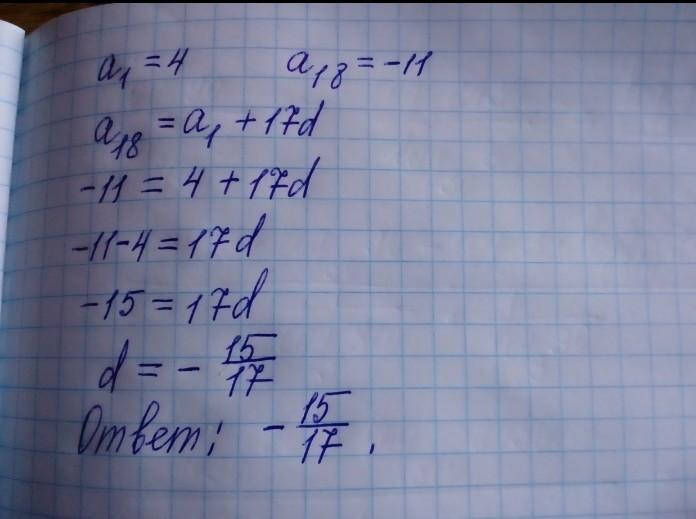 a₁ = 4 a₁₈ = -11
a₁₈ = a₁ + 17d
-11 = 4 + 17d
-11-4 = 17d
-15 = 17d
d = - 15/17
Ответ: - 15/17.